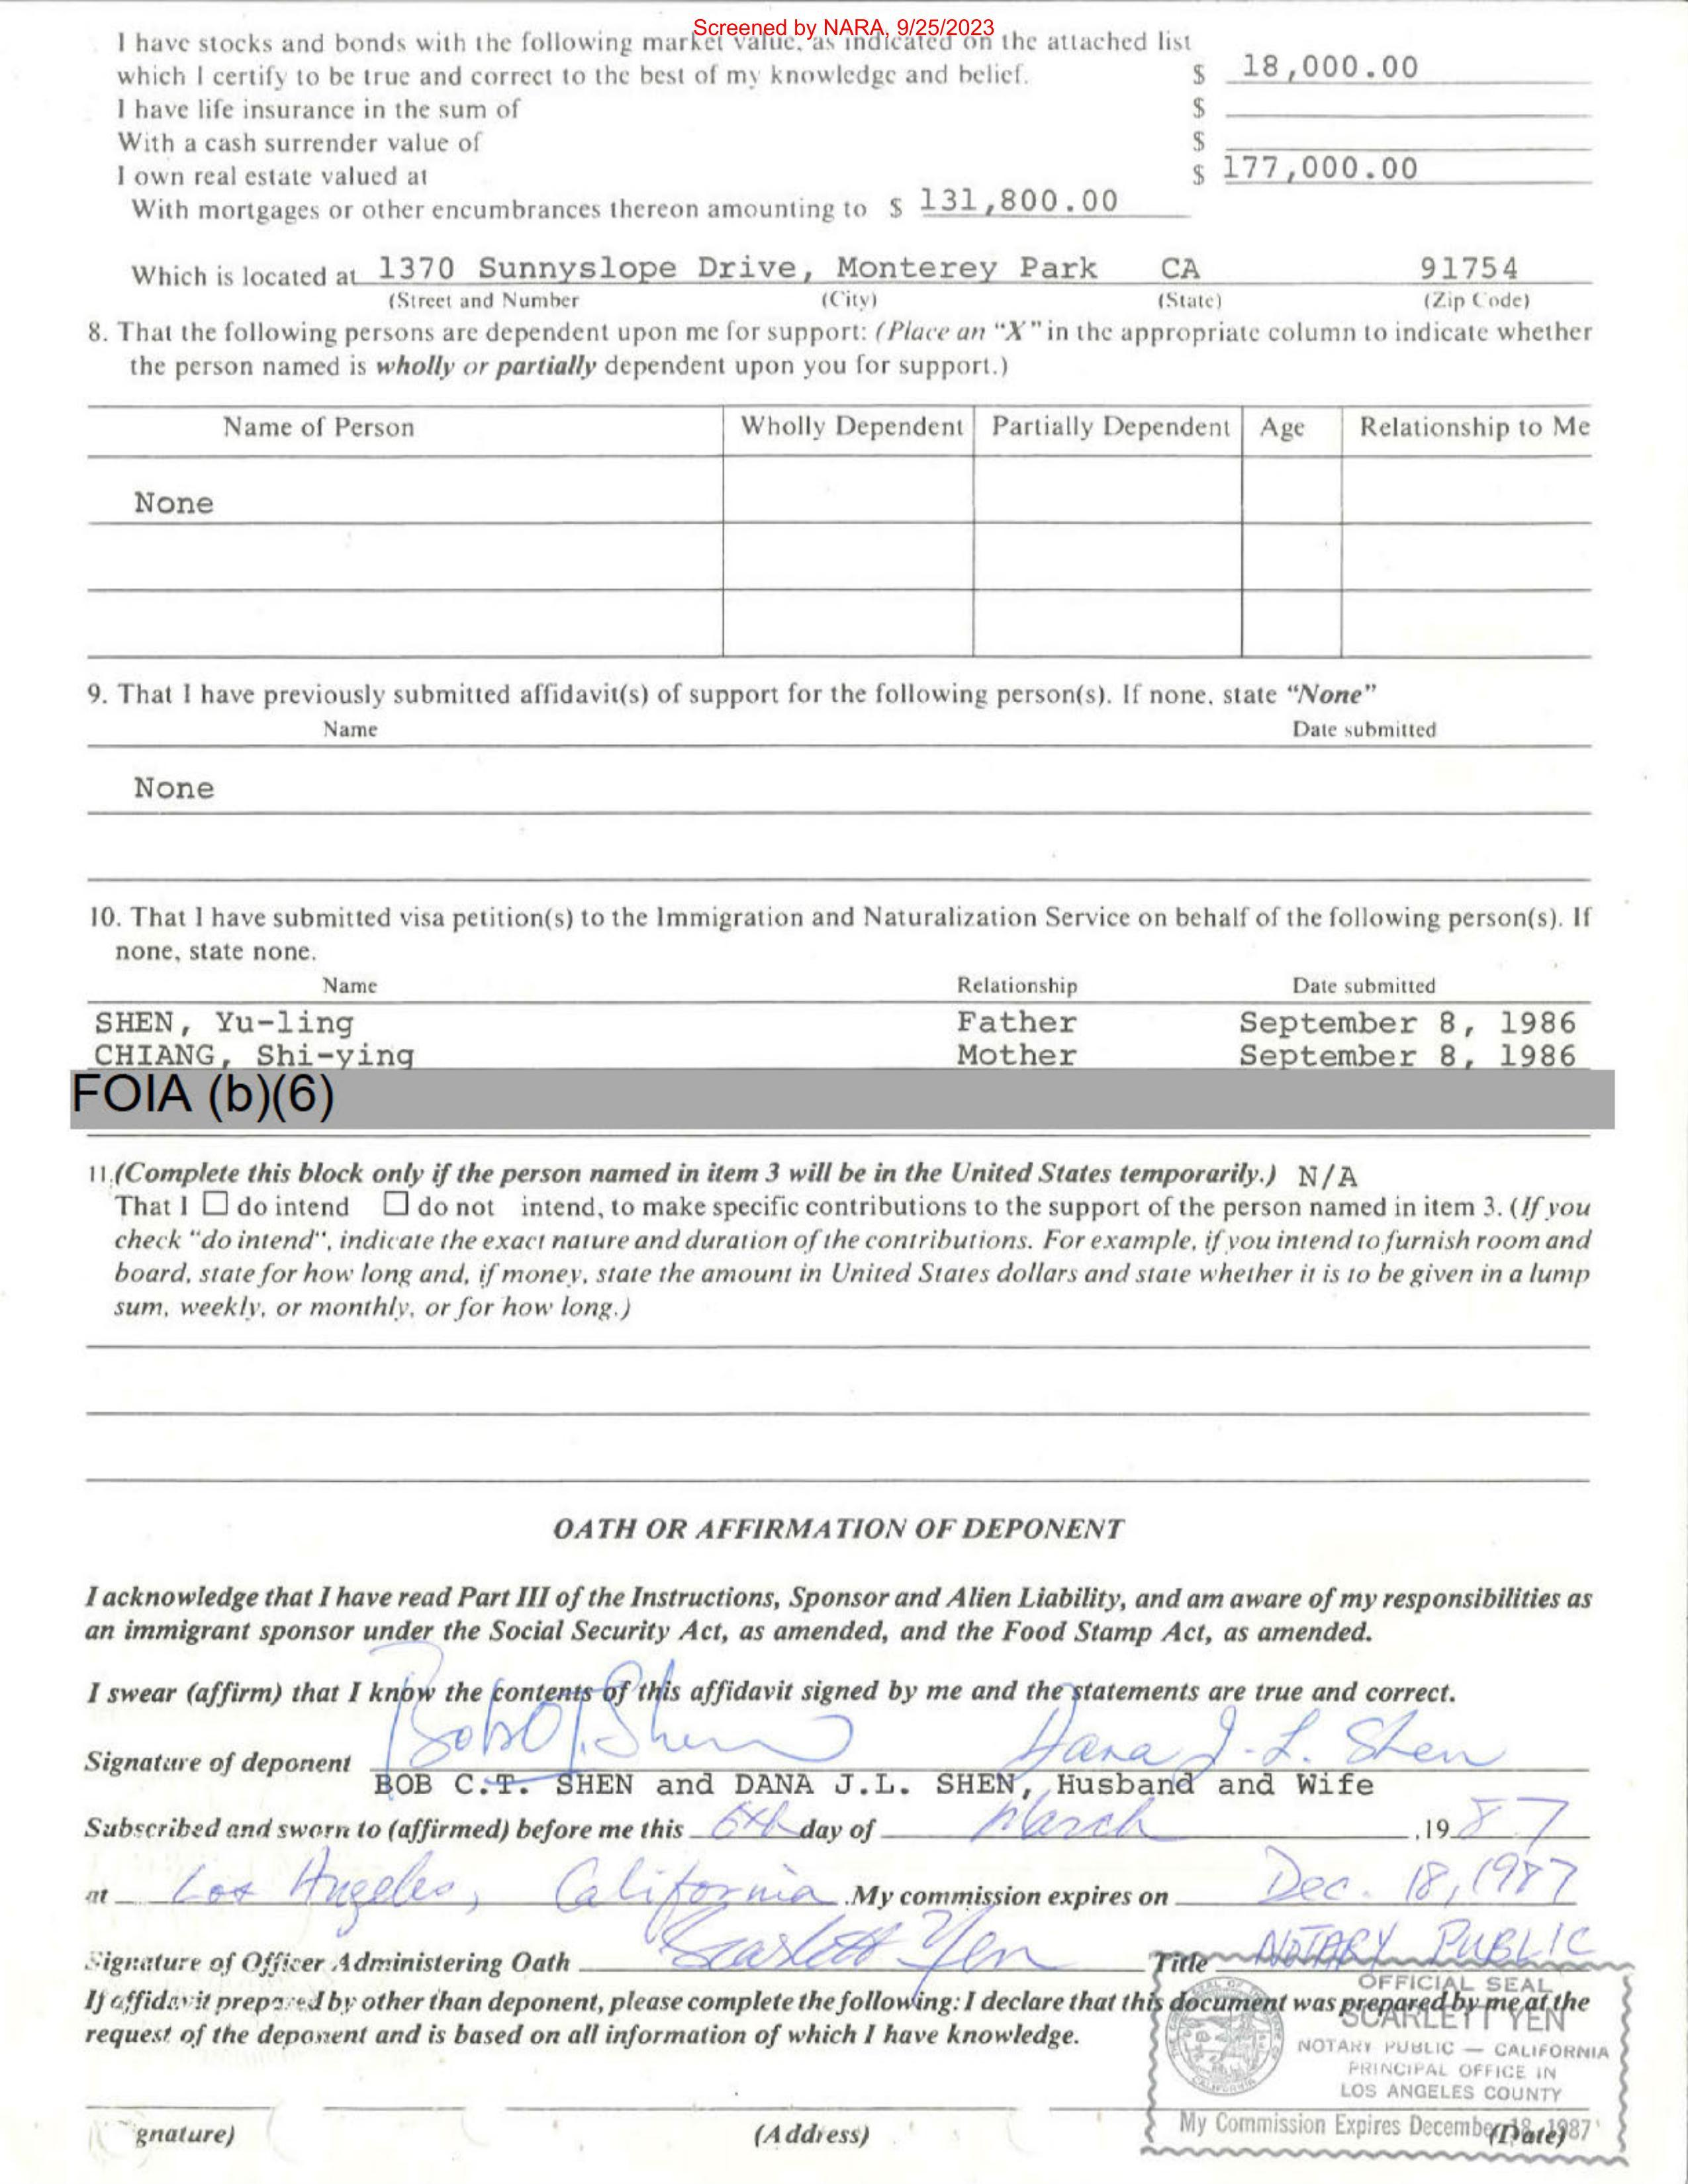 Screened by NARA, 9/25/2023
I have stocks and bonds with the following market value, as indicated on the attached list
which I certify to be true and correct to the best of my knowledge and belief. $ 18,000.00
I have life insurance in the sum of $
With a cash surrender value of $
I own real estate valued at $ 177,000.00
With mortgages or other encumbrances thereon amounting to $ 131,800.00
Which is located at 1370 Sunnyslope Drive, Monterey Park CA 91754
(Street and Number (City) (State) (Zip Code)
8. That the following persons are dependent upon me for support: (Place an “X” in the appropriate column to indicate whether
the person named is wholly or partially dependent upon you for support.)
Name of Person Wholly Dependent Partially Dependent Age Relationship to Me
None
9. That I have previously submitted affidavit(s) of support for the following person(s). If none, state “None”
Name Date submitted
None
10. That I have submitted visa petition(s) to the Immigration and Naturalization Service on behalf of the following person(s). If
none, state none.
Name Relationship Date submitted
SHEN, Yu-ling Father September 8, 1986
CHIANG, Shi-ying Mother September 8, 1986
FOIA (b)(6)
11.(Complete this block only if the person named in item 3 will be in the United States temporarily.) N/A
That I ☐ do intend ☐ do not intend, to make specific contributions to the support of the person named in item 3. (If you
check "do intend", indicate the exact nature and duration of the contributions. For example, if you intend to furnish room and
board, state for how long and, if money, state the amount in United States dollars and state whether it is to be given in a lump
sum, weekly, or monthly, or for how long.)
OATH OR AFFIRMATION OF DEPONENT
I acknowledge that I have read Part III of the Instructions, Sponsor and Alien Liability, and am aware of my responsibilities as
an immigrant sponsor under the Social Security Act, as amended, and the Food Stamp Act, as amended.
I swear (affirm) that I know the contents of this affidavit signed by me and the statements are true and correct.
Signature of deponent Bob C.T. Shen Dana J.L. Shen
BOB C.T. SHEN and DANA J.L. SHEN, Husband and Wife
Subscribed and sworn to (affirmed) before me this 6th day of March ,19 87
at Los Angeles, California .My commission expires on Dec. 18, 1987
Signature of Officer Administering Oath Scarlett Yen Title NOTARY PUBLIC
If affidavit prepared by other than deponent, please complete the following: I declare that this document was prepared by me at the
request of the deponent and is based on all information of which I have knowledge.
OFFICIAL SEAL
SCARLETT YEN
NOTARY PUBLIC — CALIFORNIA
PRINCIPAL OFFICE IN
LOS ANGELES COUNTY
My Commission Expires December 18, 1987
gnature) (Address) (Date)